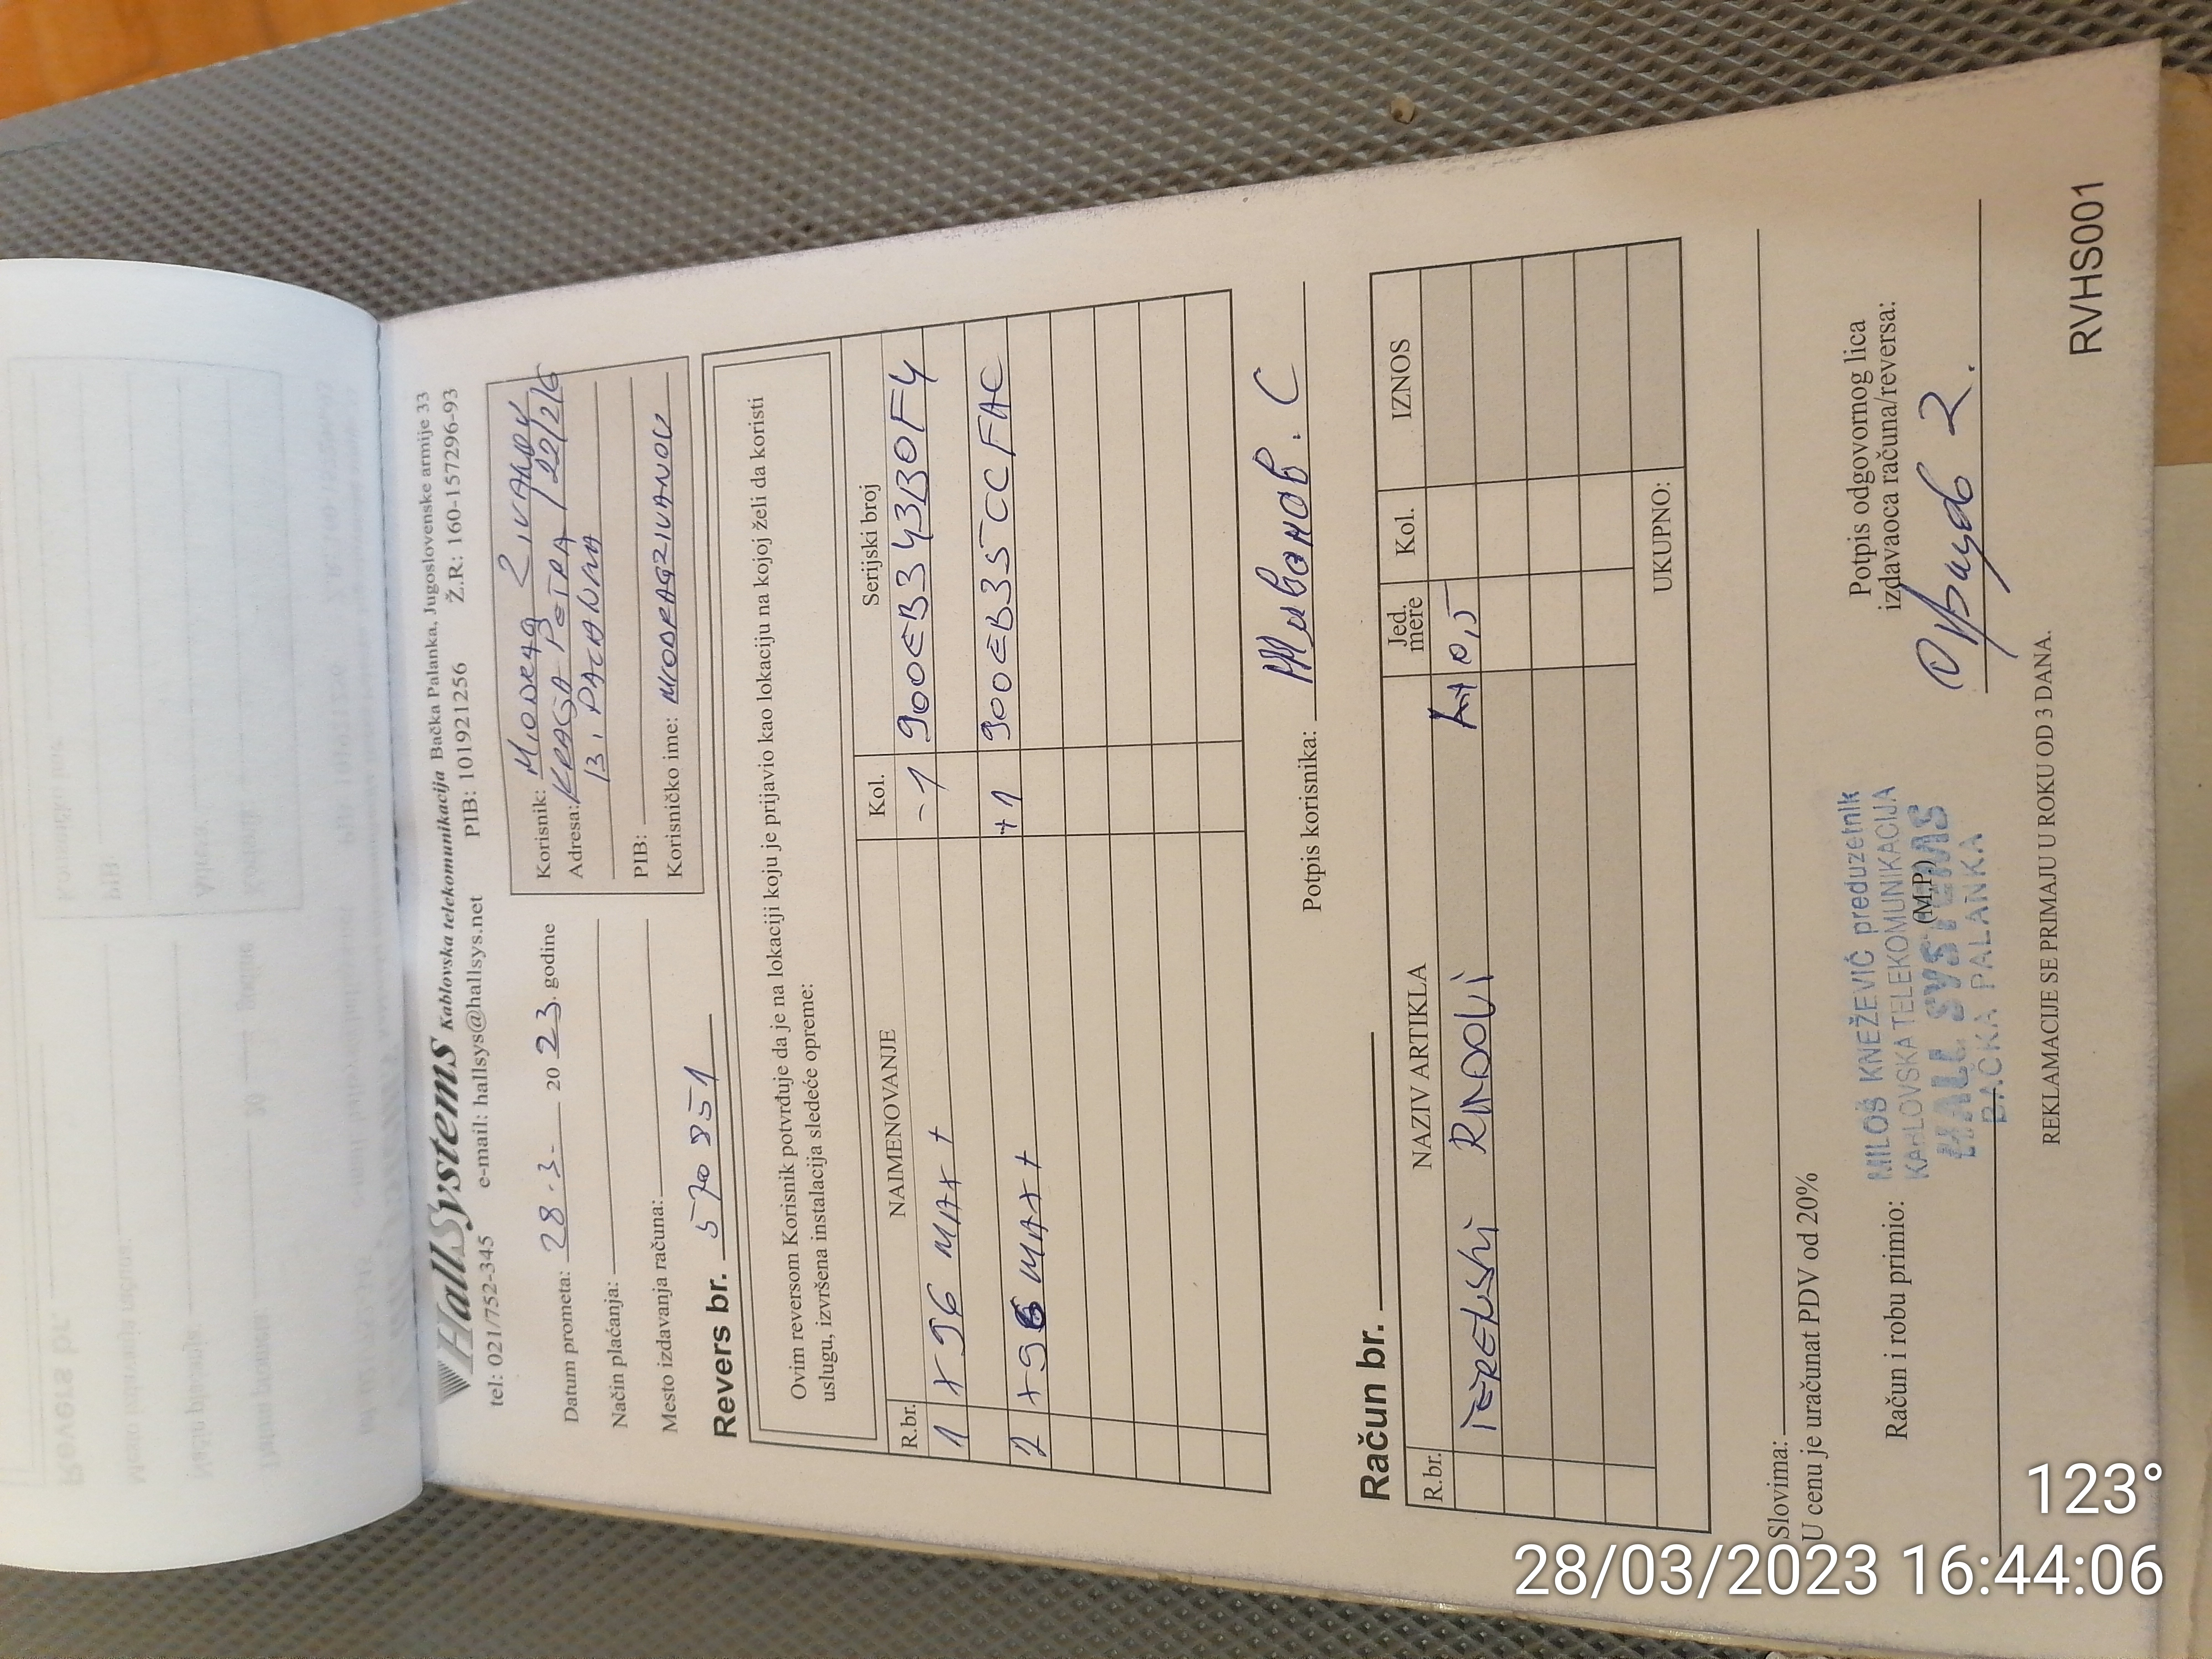 HallSystems Kablovska telekomunikacija Bačka Palanka, Jugoslovenske armije 33
tel: 021/752-345 e-mail: hallsys@hallsys.net PIB: 101921256 Ž.R.: 160-157296-93
Datum prometa: 28.3. 2023. godine
Način plaćanja:
Mesto izdavanja računa:
Korisnik: MIODRAG ŽIVANOV
Adresa: KRALJA PETRA I 22/2/6
B. PALANKA
PIB:
Korisničko ime: MIODRAGZIVANOV
Revers br. 570 851
Ovim reversom Korisnik potvrđuje da je na lokaciji koju je prijavio kao lokaciju na kojoj želi da koristi
uslugu, izvršena instalacija sledeće opreme:
R.br. NAIMENOVANJE Kol. Serijski broj
1 X96 MAX + -1 900EB343B0F4
2 X96 MAX + +1 900EB35CCFAC
Potpis korisnika: Живанов. С
Račun br.
R.br. NAZIV ARTIKLA Jed. mere Kol. IZNOS
TERENSKI RADOVI h 0,5
UKUPNO:
Slovima:
U cenu je uračunat PDV od 20%
Račun i robu primio:
MILOŠ KNEŽEVIĆ preduzetnik
KABLOVSKA TELEKOMUNIKACIJA
HALL SYSTEMS
BAČKA PALANKA
(M.P.)
Potpis odgovornog lica
izdavaoca računa/reversa:
REKLAMACIJE SE PRIMAJU U ROKU OD 3 DANA.
RVHS001
123°
28/03/2023 16:44:06